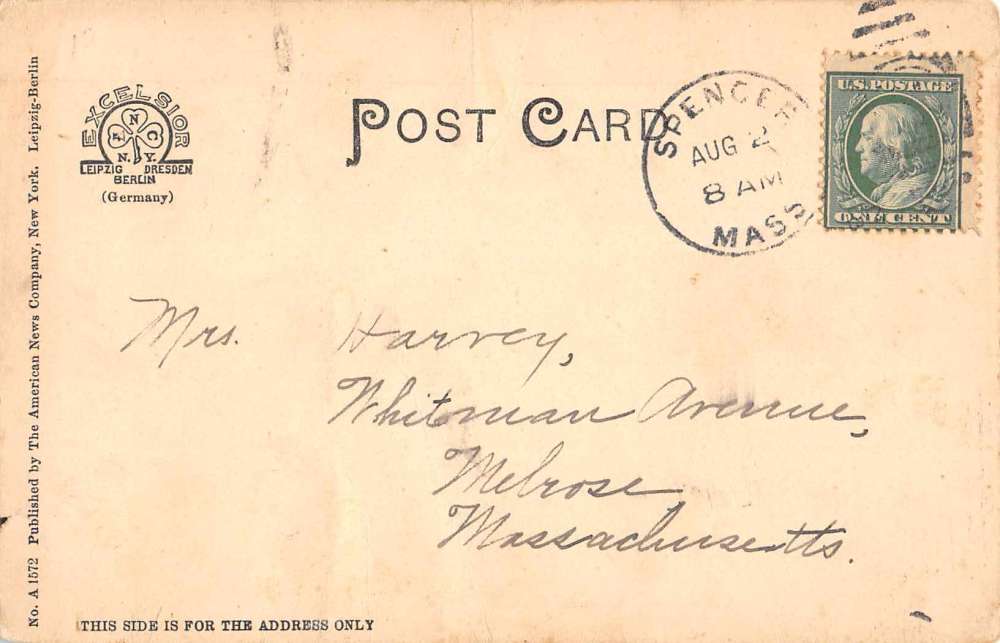 No. A 1572 Published by The American News Company, New York. Leipzig-Berlin
EXCELSIOR
A N C
N.Y.
LEIPZIG DRESDEN
BERLIN
(Germany)
POST CARD
SPENCER
AUG 2
8 AM
MASS
U.S. POSTAGE
ONE CENT
Mrs. Harvey,
Whitman Avenue,
Melrose
Massachusetts.
THIS SIDE IS FOR THE ADDRESS ONLY